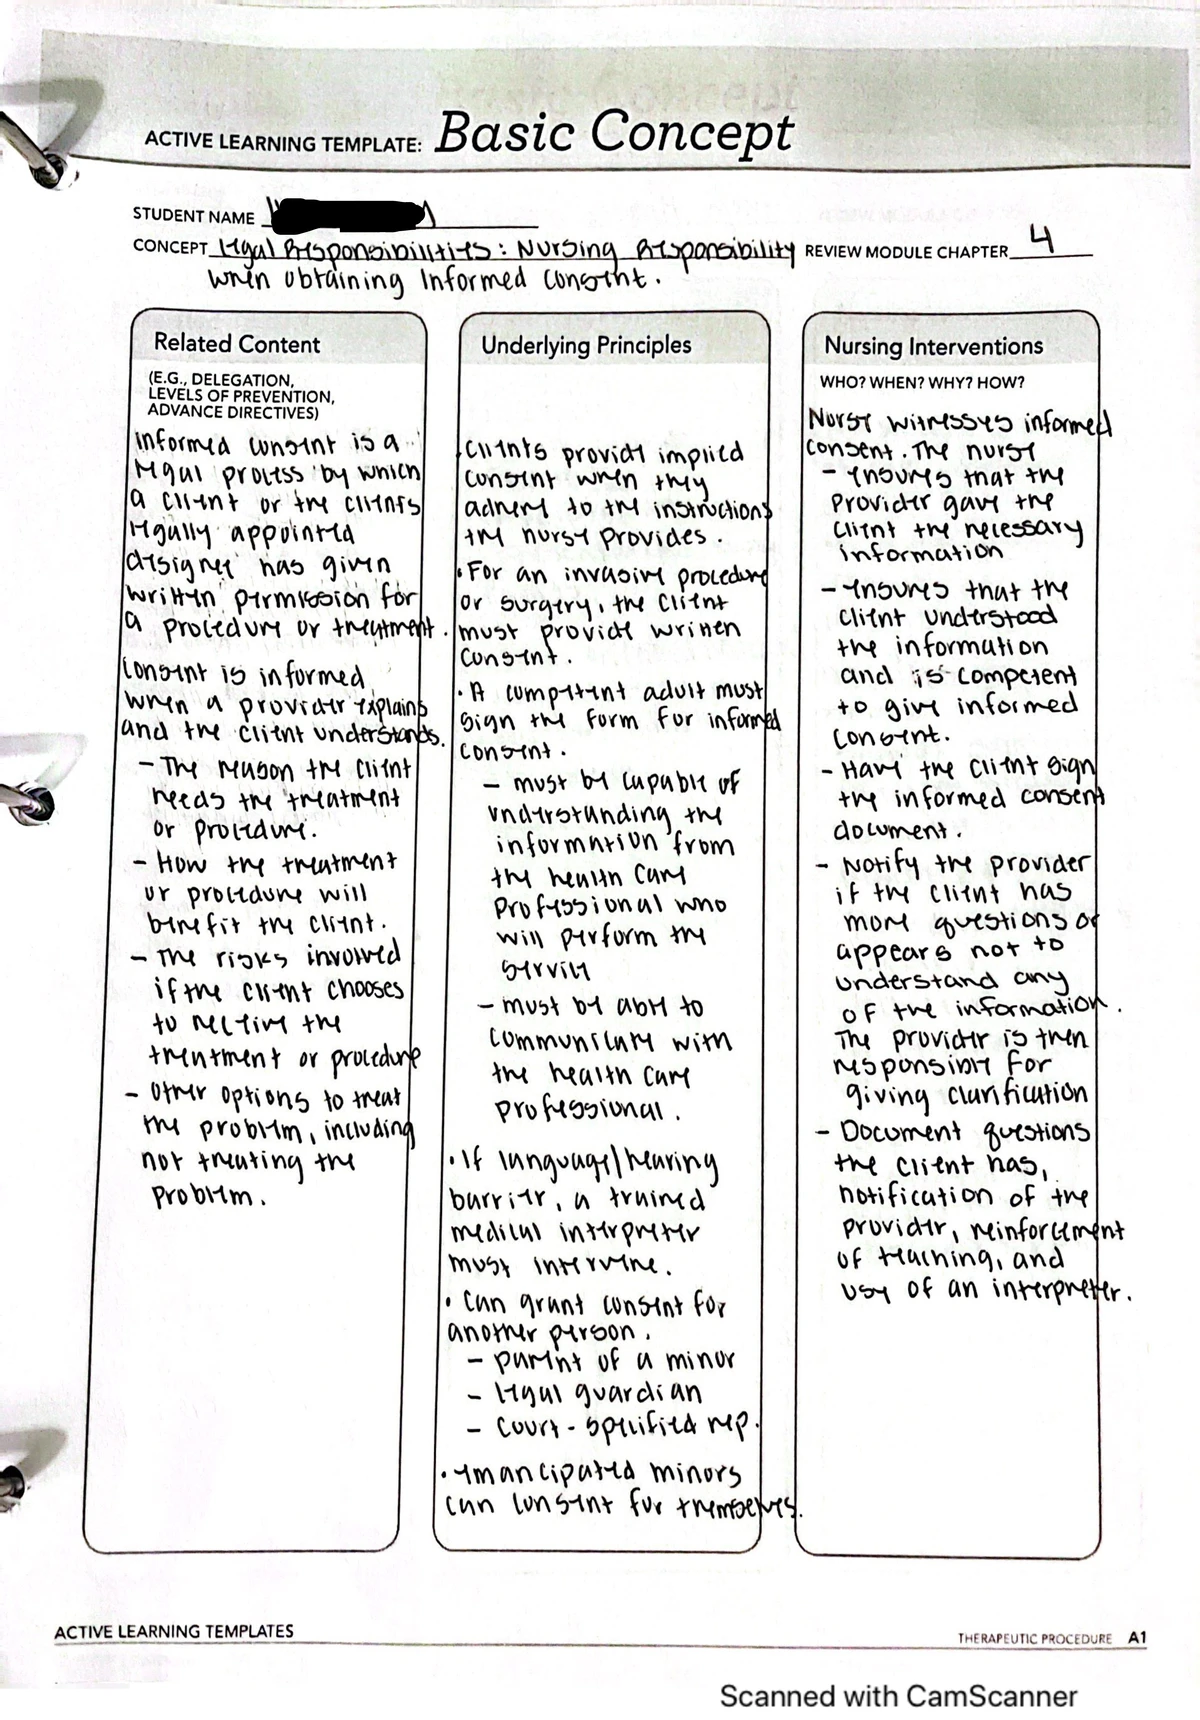 ACTIVE LEARNING TEMPLATE: Basic Concept
STUDENT NAME
CONCEPT Legal Responsibilities: Nursing Responsibility REVIEW MODULE CHAPTER 4
when obtaining Informed Consent.
Related Content
(E.G., DELEGATION,
LEVELS OF PREVENTION,
ADVANCE DIRECTIVES)
informed consent is a
legal process by which
a client or the clients
legally appointed
designee has given
written permission for
a procedure or treatment.
Consent is informed
when a provider explains
and the client understands.
- The reason the client
needs the treatment
or procedure.
- How the treatment
or procedure will
benefit the client.
- The risks involved
if the client chooses
to receive the
treatment or procedure
- Other options to treat
the problem, including
not treating the
problem.
Underlying Principles
Clients provide implied
consent when they
adhere to the instructions
the nurse provides.
• For an invasive procedure
or surgery, the client
must provide written
consent.
• A competent adult must
sign the form for informed
consent.
- must be capable of
understanding the
information from
the health care
professional who
will perform the
service
- must be able to
communicate with
the health care
professional.
• If language/hearing
barrier, a trained
medical interpreter
must intervene.
• Can grant consent for
another person.
- parent of a minor
- legal guardian
- court-specified rep.
• emancipated minors
can consent for themselves.
Nursing Interventions
WHO? WHEN? WHY? HOW?
Nurse witnesses informed
consent. The nurse
- ensures that the
provider gave the
client the necessary
information
- ensures that the
client understood
the information
and is competent
to give informed
consent.
- Have the client sign
the informed consent
document.
- Notify the provider
if the client has
more questions or
appears not to
understand any
of the information.
The provider is then
responsible for
giving clarification
- Document questions
the client has,
notification of the
provider, reinforcement
of teaching, and
use of an interpreter.
ACTIVE LEARNING TEMPLATES
THERAPEUTIC PROCEDURE A1
Scanned with CamScanner